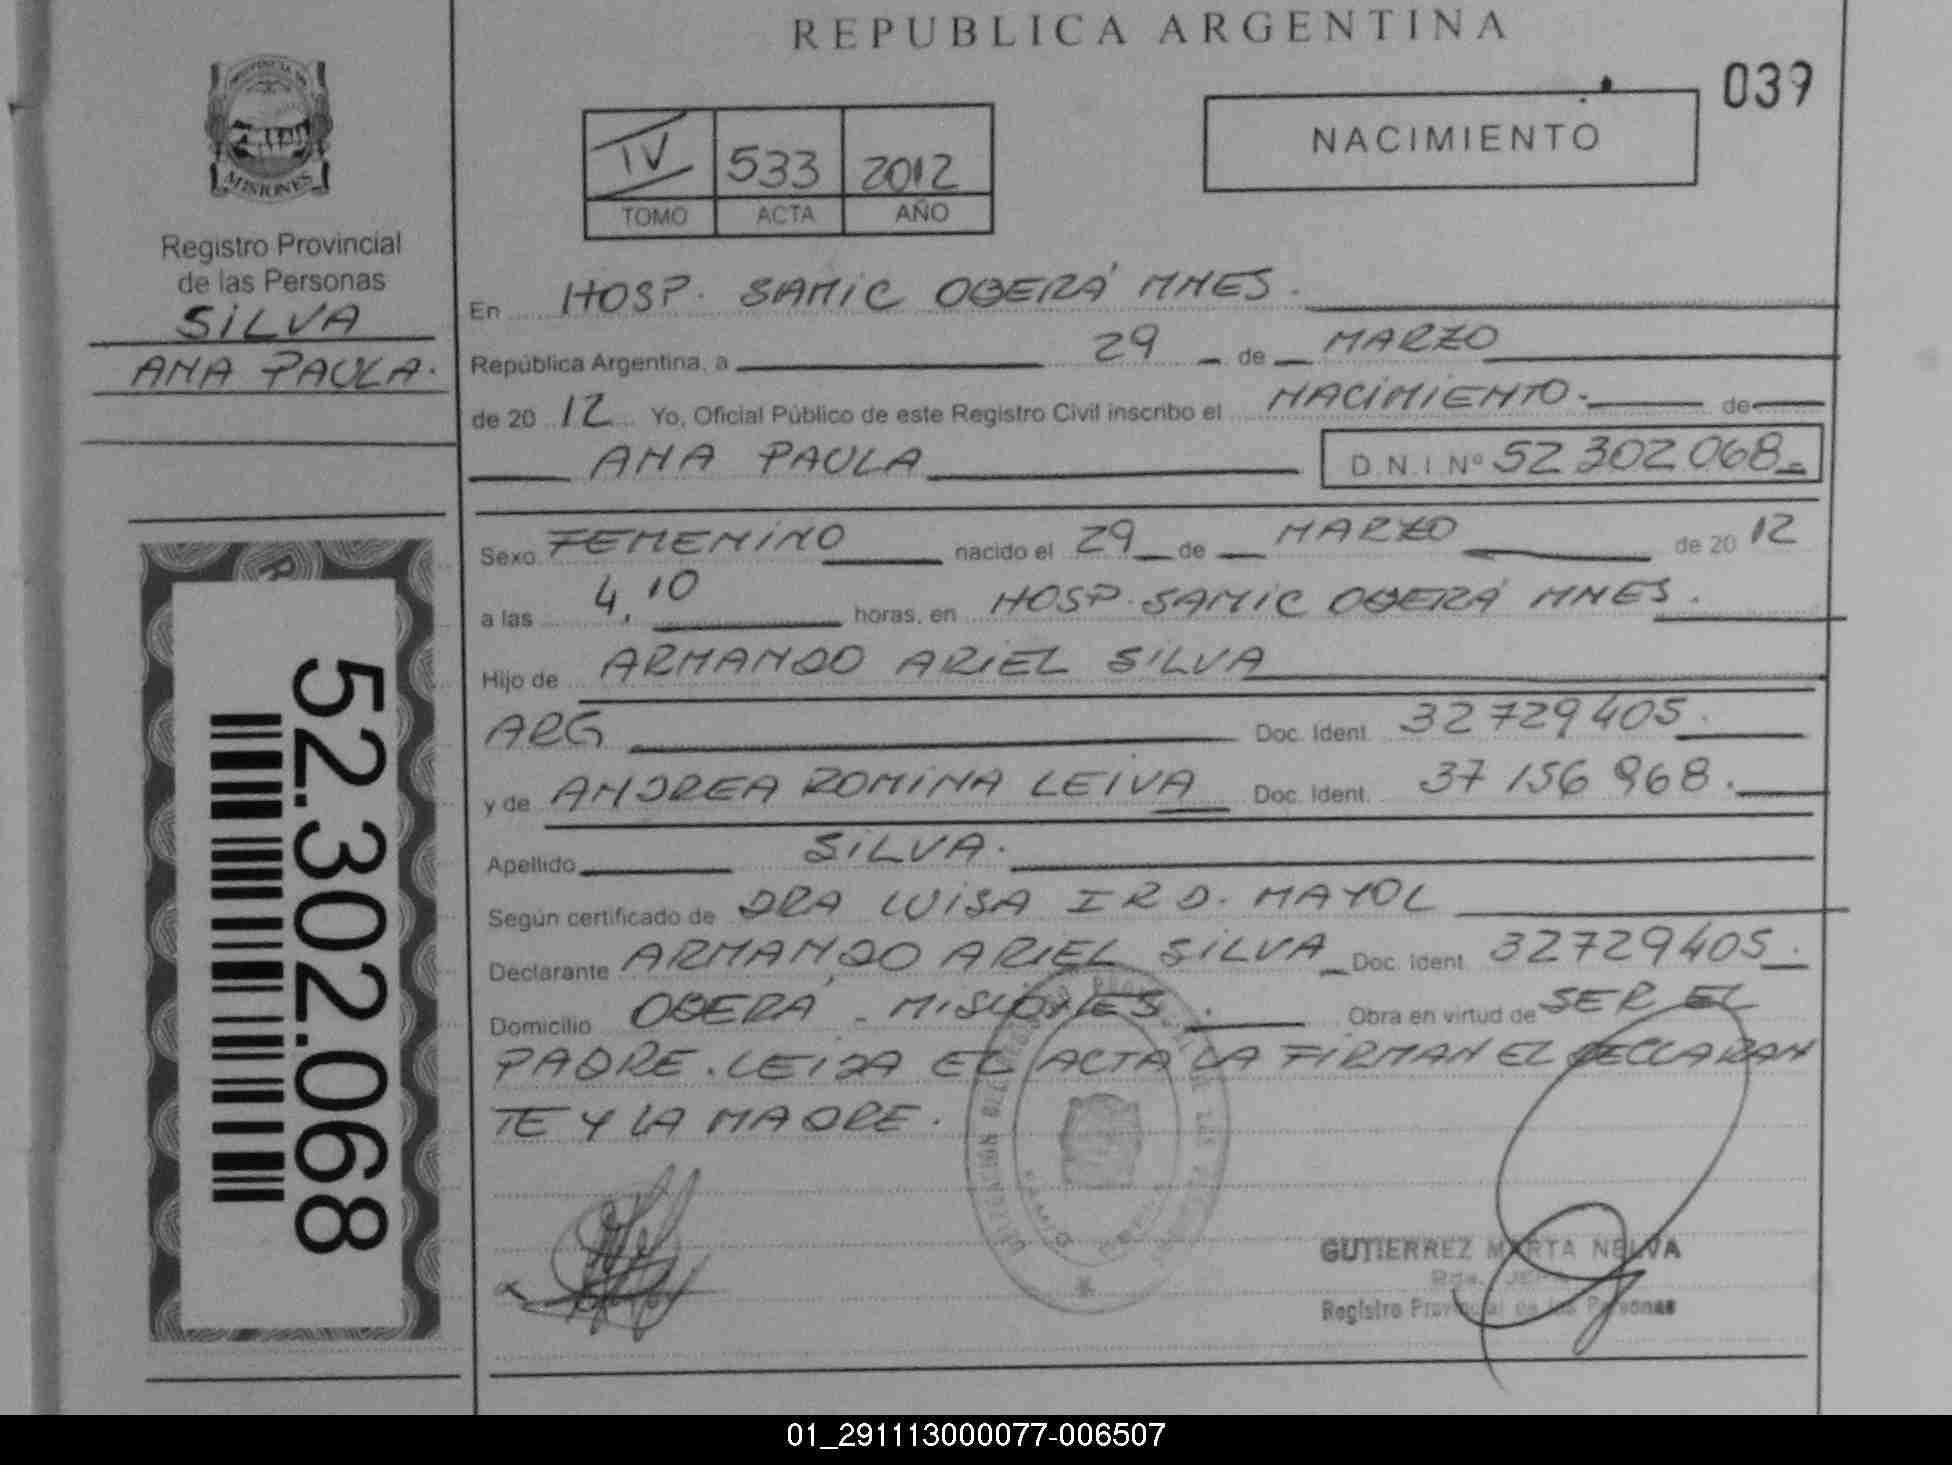 REPUBLICA ARGENTINA
039
NACIMIENTO
IV 533 2012
TOMO ACTA AÑO
MISIONES
Registro Provincial
de las Personas
SILVA
ANA PAULA.
En HOSP. SAMIC OBERÁ MNES.
República Argentina, a 29 de MARZO
de 20 12 Yo, Oficial Público de este Registro Civil inscribo el NACIMIENTO. de
ANA PAULA D.N.I. Nº 52 302 068
Sexo FEMENINO nacido el 29 de MARZO de 20 12
a las 4,10 horas, en HOSP. SAMIC OBERÁ MNES.
Hijo de ARMANDO ARIEL SILVA
ARG Doc. Ident. 32 729 405.
y de ANDREA ROMINA LEIVA Doc. Ident. 37 156 968.
Apellido SILVA.
Según certificado de DRA LUISA I R D. MAYOL
Declarante ARMANDO ARIEL SILVA Doc. Ident. 32729405.
Domicilio OBERÁ - MISIONES. Obra en virtud de SER EL
PADRE. LEIDA EL ACTA LA FIRMAN EL DECLARAN
TE Y LA MADRE.
52.302.068
GUTIERREZ MARTA NELVA
Registro Provincial de las Personas
01_291113000077-006507